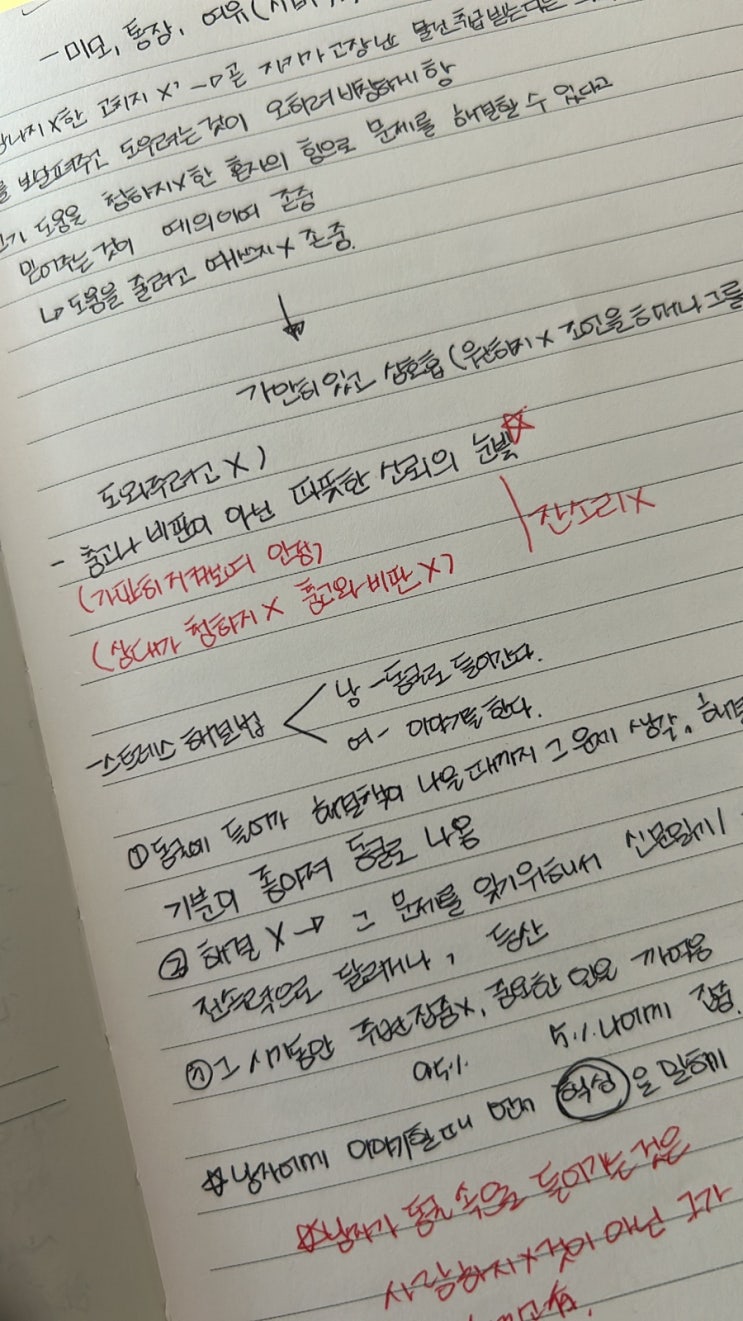 - 미모, 통장, 여유
나지 X한 고치지 X' → 곧 자기가 고장난 물건 취급받는다는
를 보살펴주고 도우려는 것이 오히려 비참하게 함
도움을 청하지 X한 혼자의 힘으로 문제를 해결할 수 있다고
믿어주는 것이 예의이며 존중
↳ 도움을 줄려고 애쓰지 X 존중.
↓
가만히 있고 심호흡 (원하지 X 조언을 하거나 그를
도와주려고 X)
- 충고나 비판이 아닌 따뜻한 신뢰의 눈빛 ☆
(가만히 지켜보며 안정) 잔소리 X
(상대가 청하지 X 충고와 비판 X)
- 스트레스 해결법 < 남 - 동굴로 들어간다.
여 - 이야기를 한다.
① 동굴에 들어가 해결책이 나올 때까지 그 문제 생각, 해결
기분이 좋아져 동굴로 나옴
② 해결 X → 그 문제를 잊기위해서 신문읽기
전속력으로 달리거나, 등산
③ 그 시기동안 주변집중X, 중요한 일요 까먹음
95% 5% 나에게 집중.
☆ 남자에게 이야기할 때 먼저 핵심을 말하기
☆ 남자가 동굴 속으로 들어가는 것은
사랑하지 X 것이 아닌 그가